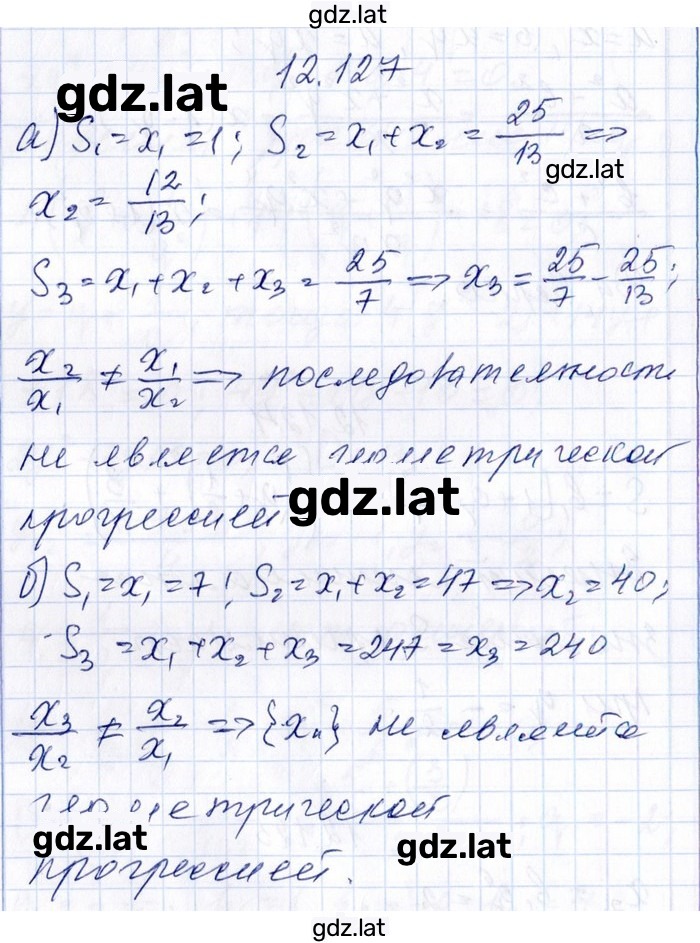 gdz.lat
12.127
gdz.lat
а) S₁ = x₁ = 1; S₂ = x₁ + x₂ = 25/13 =>
gdz.lat
x₂ = 12/13;
S₃ = x₁ + x₂ + x₃ = 25/7 => x₃ = 25/7 - 25/13;
x₂/x₁ ≠ x₁/x₂ => последовательность
не является геометрической
gdz.lat
прогрессией
б) S₁ = x₁ = 7; S₂ = x₁ + x₂ = 47 => x₂ = 40;
S₃ = x₁ + x₂ + x₃ = 247 = x₃ = 240
x₃/x₂ ≠ x₂/x₁ => {xₙ} не является
геометрической
gdz.lat
gdz.lat
прогрессией.
gdz.lat